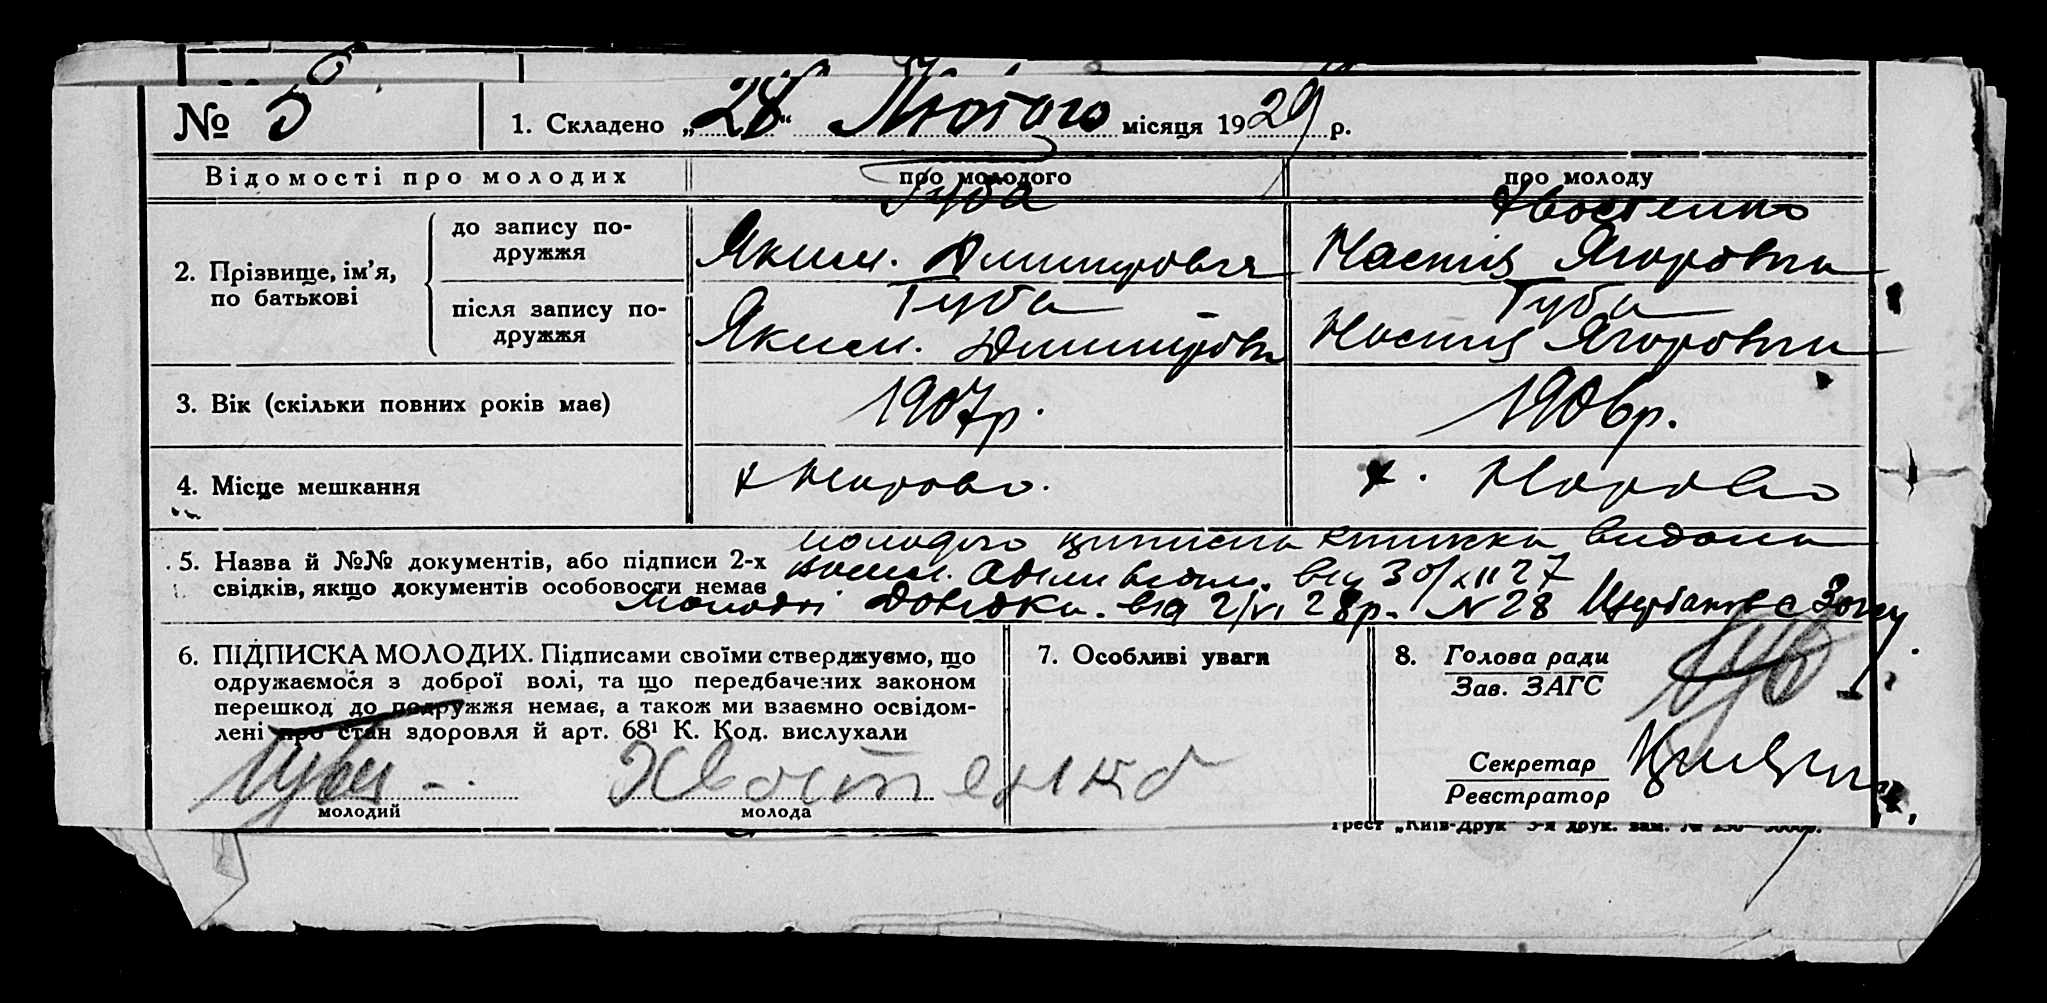 № 5
1. Складено „28“ Лютого місяця 1929 р.
Відомості про молодих
про молодого
про молоду
2. Прізвище, ім’я, по батькові
до запису подружжя
Губа
Яким.
Хвостенко
Настія Ягоровна
після запису подружжя
Губа
Яким.
Губа
Настія Ягоровна
3. Вік (скільки повних років має)
1907р.
1906р.
4. Місце мешкання
х
х.
5. Назва й №№ документів, або підписи 2-х
свідків, якщо документів особовости немає
молодого книжка видана
від 30/XII 27
Молодої Довідка від 2/VI 28р. N 28
6. ПІДПИСКА МОЛОДИХ. Підписами своїми стверджуємо, що
одружаємося з доброї волі, та що передбачених законом
перешкод до подружжя немає, а також ми взаємно освідом-
лені про стан здоровля й арт. 68¹ К. Код. вислухали
Губа
молодий
Хвостенко
молода
7. Особливі уваги
8. Голова ради
Зав. ЗАГС
Секретар
Реєстратор
Трест „Київ-Друк“ 3-я друк. зам. №